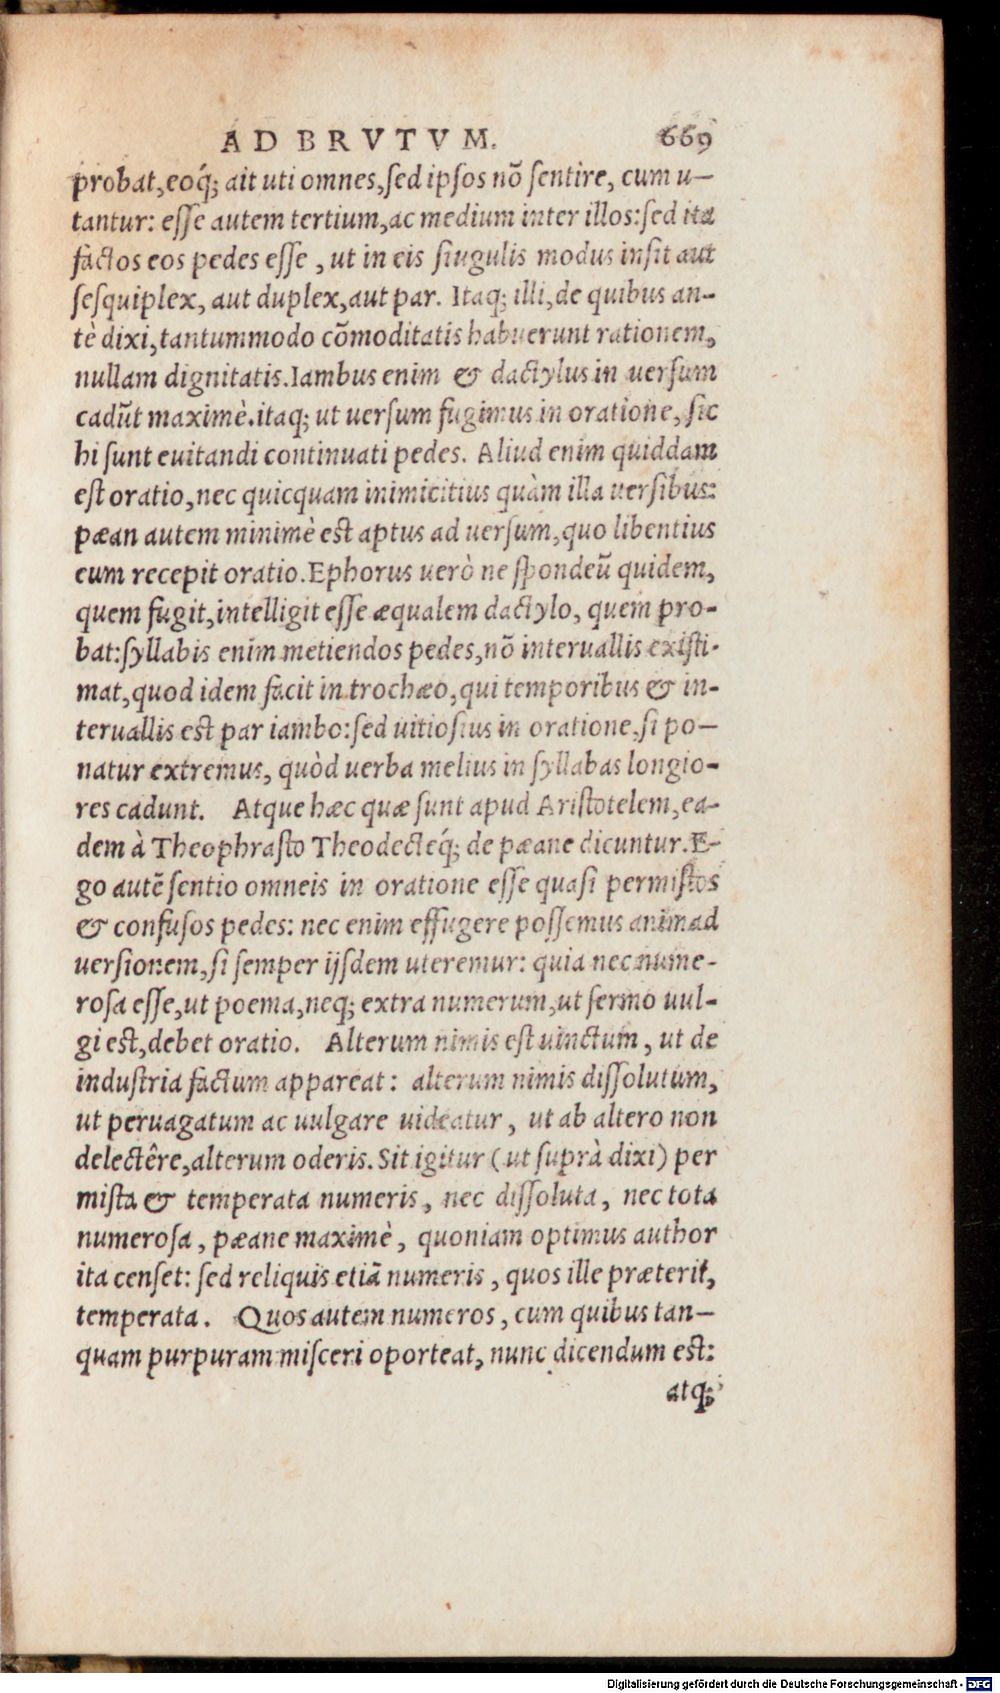 AD BRVTVM. 669
probat, eoq́; ait uti omnes, sed ipsos nō sentire, cum u-
tantur: esse autem tertium, ac medium inter illos: sed ita
factos eos pedes esse, ut in eis siugulis modus insit aut
sesquiplex, aut duplex, aut par. Itaq; illi, de quibus an-
tè dixi, tantummodo cōmoditatis habuerunt rationem,
nullam dignitatis. Iambus enim & dactylus in uersum
cadūt maximè. itaq; ut uersum fugimus in oratione, sic
hi sunt euitandi continuati pedes. Aliud enim quiddam
est oratio, nec quicquam inimicitius quàm illa uersibus:
pæan autem minimè est aptus ad uersum, quo libentius
eum recepit oratio. Ephorus uerò ne spondeū quidem,
quem fugit, intelligit esse æqualem dactylo, quem pro-
bat: syllabis enim metiendos pedes, nō interuallis existi-
mat, quod idem facit in trochæo, qui temporibus & in-
teruallis est par iambo: sed uitiosius in oratione, si po-
natur extremus, quòd uerba melius in syllabas longio-
res cadunt. Atque hæc quæ sunt apud Aristotelem, ea-
dem à Theophrasto Theodecteq́; de pæane dicuntur. E-
go autē sentio omneis in oratione esse quasi permistos
& confusos pedes: nec enim effugere possemus animad
uersionem, si semper ijsdem uteremur: quia nec nume-
rosa esse, ut poema, neq; extra numerum, ut sermo uul-
gi est, debet oratio. Alterum nimis est uinctum, ut de
industria factum appareat: alterum nimis dissolutum,
ut peruagatum ac uulgare uideatur, ut ab altero non
delectêre, alterum oderis. Sit igitur (ut suprà dixi) per
mista & temperata numeris, nec dissoluta, nec tota
numerosa, pæane maximè, quoniam optimus author
ita censet: sed reliquis etiā numeris, quos ille præterit,
temperata. Quos autem numeros, cum quibus tan-
quam purpuram misceri oporteat, nunc dicendum est:
atq;
Digitalisierung gefördert durch die Deutsche Forschungsgemeinschaft - DFG